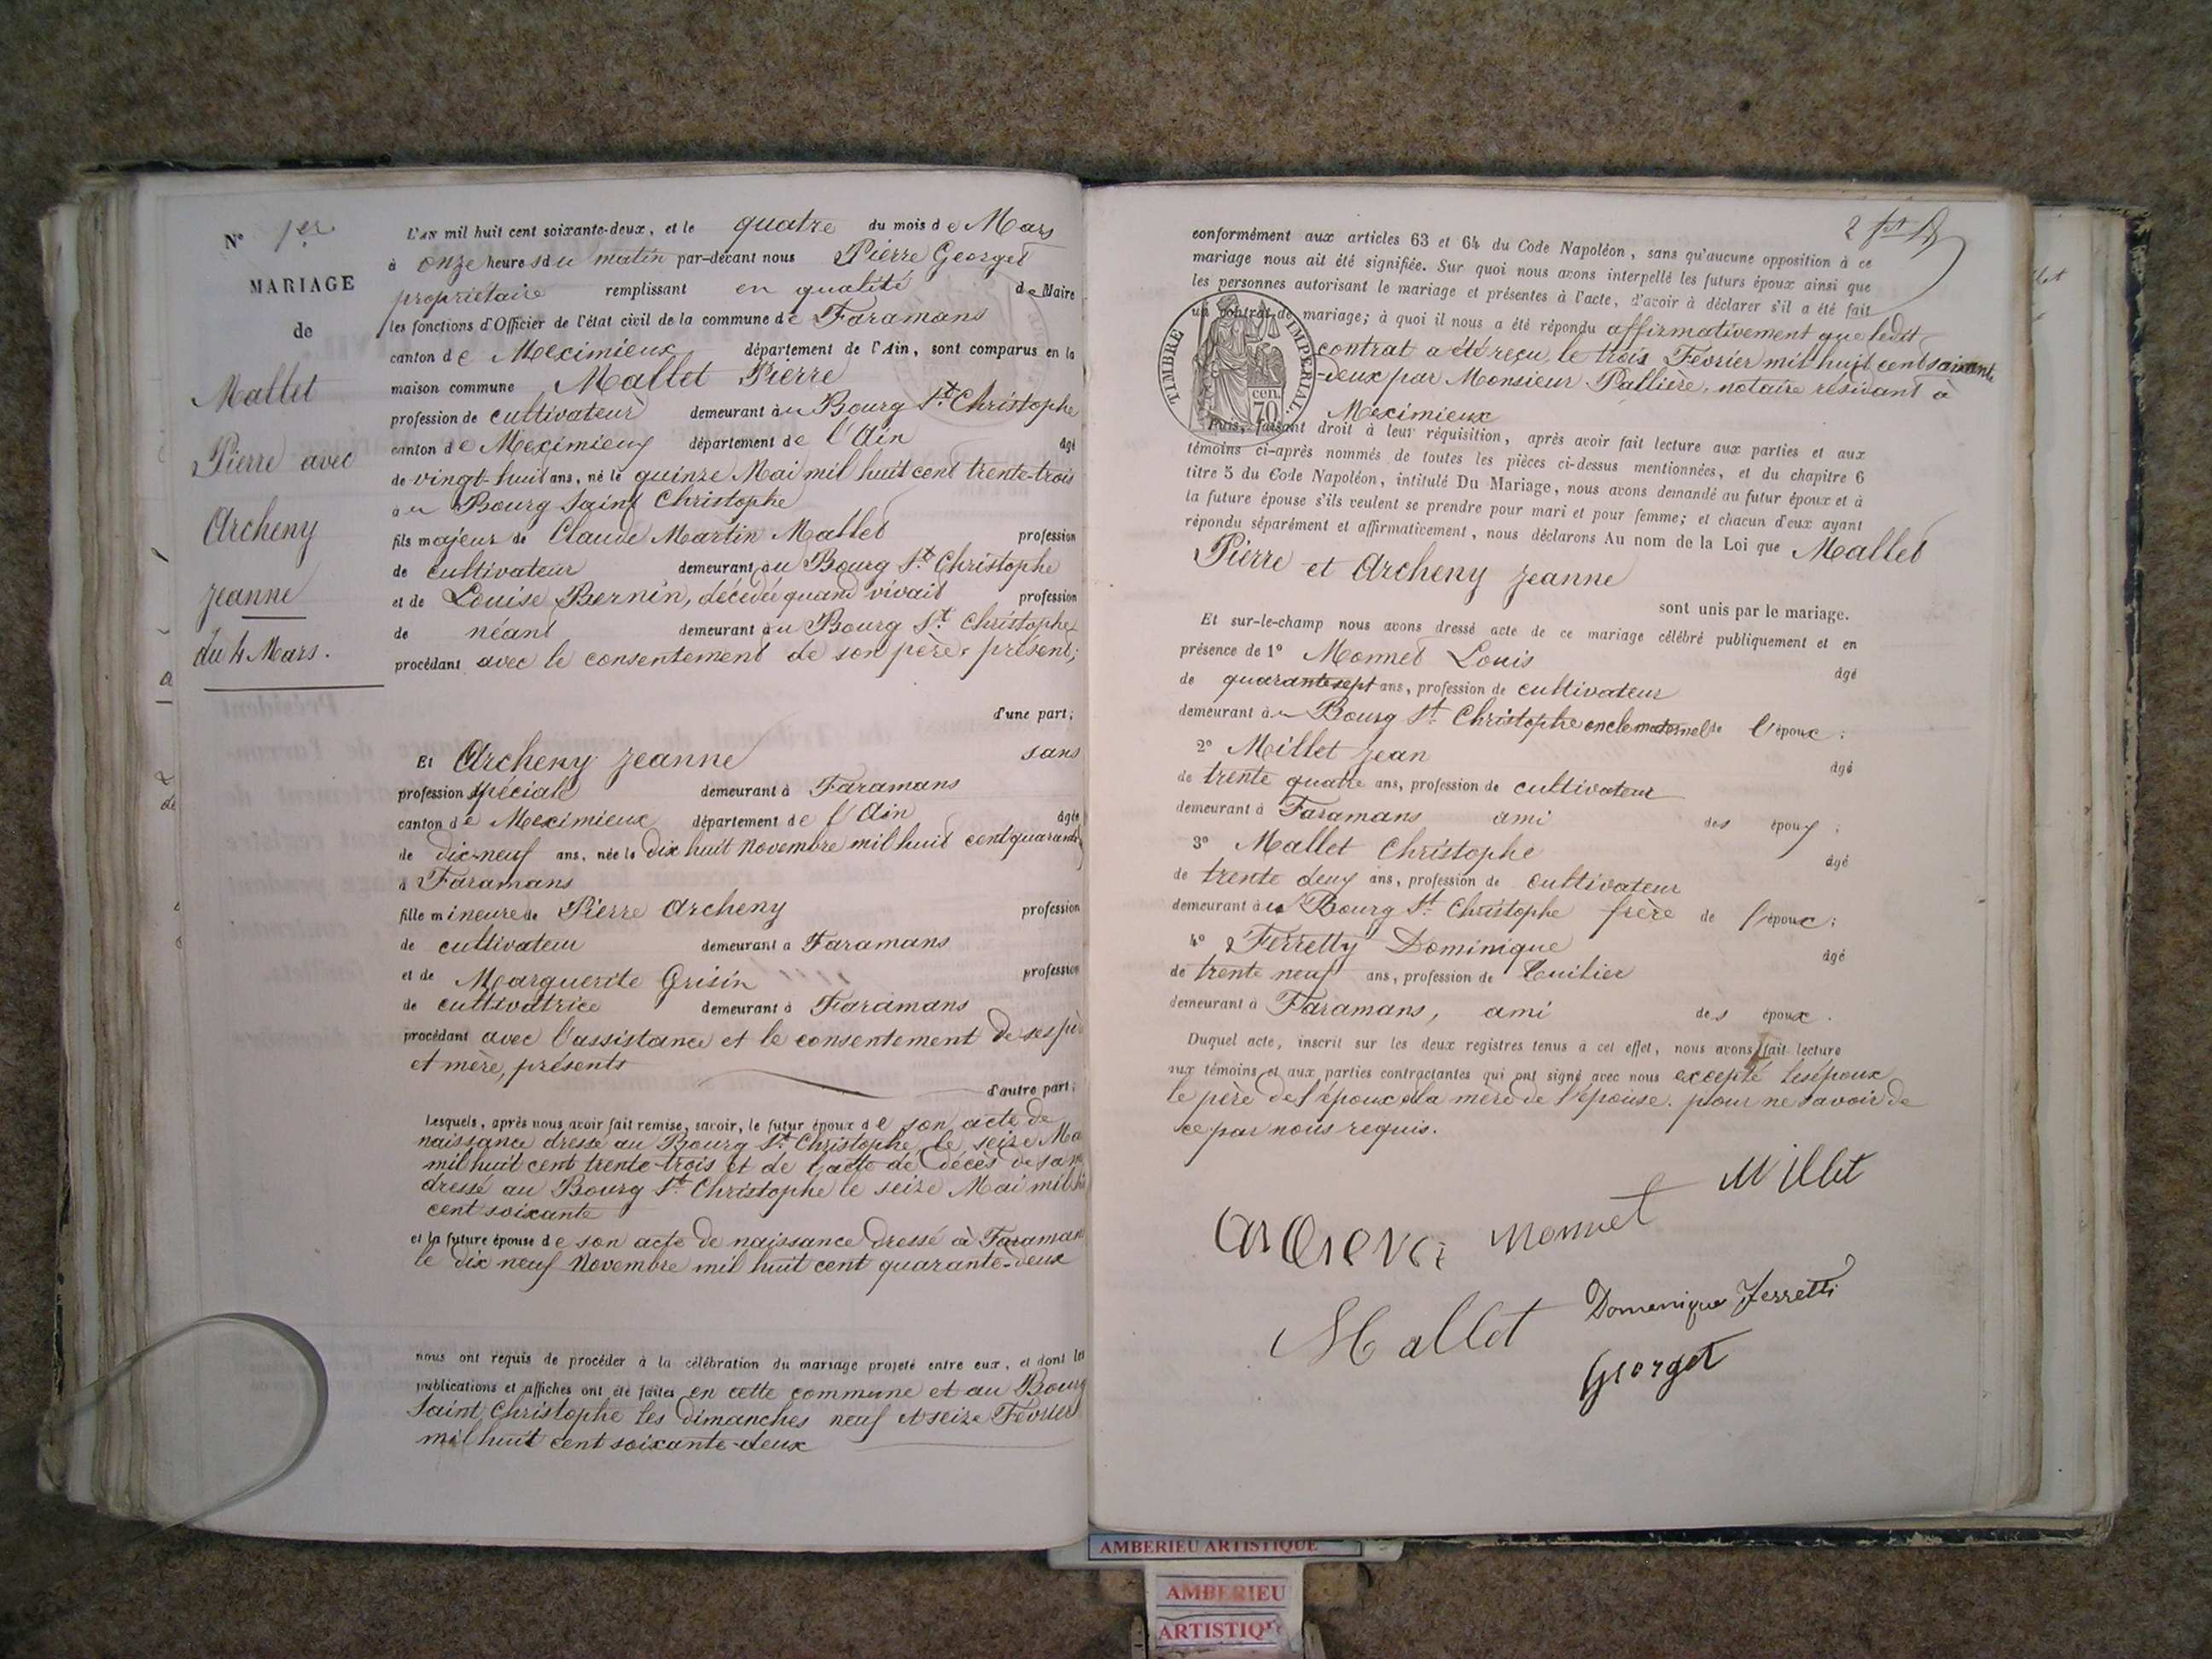 N° 1er
MARIAGE
de
Mallet
Pierre avec
Archeny
jeanne
du 4 Mars.
L'AN mil huit cent soixante-deux, et le quatre du mois de Mars
à onze heures du matin par-devant nous Pierre Georget
propriétaire remplissant en qualité de Maire
les fonctions d'Officier de l'état civil de la commune de Faramans
canton de Meximieux département de l'Ain, sont comparus en la
maison commune Mallet Pierre
profession de cultivateur demeurant au Bourg St Christophe
canton de Meximieux département de l'Ain âgé
de vingt-huit ans, né le quinze Mai mil huit cent trente-trois
au Bourg Saint Christophe
fils majeur de Claude Martin Mallet profession
de cultivateur demeurant au Bourg St Christophe
et de Louise Bernin, décédée quand vivait profession
de néant demeurant au Bourg St Christophe
procédant avec le consentement de son père, présent;
d'une part;
Et Archeny jeanne sans
profession spéciale demeurant à Faramans
canton de Meximieux département de l'Ain âgée
de dix-neuf ans, née le dix huit Novembre mil huit cent quarante
à Faramans
fille mineure de Pierre Archeny profession
de cultivateur demeurant à Faramans
et de Marguerite Grisin profession
de cultivatrice demeurant à Faramans
procédant avec l'assistance et le consentement de ses
et mère, présents
d'autre part;
Lesquels, après nous avoir fait remise, savoir, le futur époux de son acte de
naissance dressé au Bourg St Christophe, le seize
mil huit cent trente-trois et de l'acte de décès de sa
dressé au Bourg St Christophe le seize Mai mil
cent soixante
et la future épouse de son acte de naissance dressé à Faraman
le dix neuf Novembre mil huit cent quarante-deux
nous ont requis de procéder à la célébration du mariage projeté entre eux, et dont les
publications et affiches ont été faites en cette commune et au Bourg
Saint Christophe les dimanches neuf et seize Février
mil huit cent soixante-deux
conformément aux articles 63 et 64 du Code Napoléon, sans qu'aucune opposition à ce
mariage nous ait été signifiée. Sur quoi nous avons interpellé les futurs époux ainsi que
les personnes autorisant le mariage et présentes à l'acte, d'avoir à déclarer s'il a été fait
un contrat de mariage; à quoi il nous a été répondu affirmativement que ledit
contrat a été reçu le trois Février mil huit cent soixante
-deux par Monsieur Pallière, notaire résidant à
Meximieux
TIMBRE IMPERIAL
cen.
70
Puis, faisant droit à leur réquisition, après avoir fait lecture aux parties et aux
témoins ci-après nommés de toutes les pièces ci-dessus mentionnées, et du chapitre 6
titre 5 du Code Napoléon, intitulé Du Mariage, nous avons demandé au futur époux et à
la future épouse s'ils veulent se prendre pour mari et pour femme; et chacun d'eux ayant
répondu séparément et affirmativement, nous déclarons Au nom de la Loi que Mallet
Pierre et Archeny jeanne
sont unis par le mariage.
Et sur-le-champ nous avons dressé acte de ce mariage célébré publiquement et en
présence de 1° Monnet Louis âgé
de quarante sept ans, profession de cultivateur
demeurant au Bourg St Christophe oncle maternel de l'époux;
2° Millet jean âgé
de trente quatre ans, profession de cultivateur
demeurant à Faramans ami des époux;
3° Mallet Christophe âgé
de trente deux ans, profession de cultivateur
demeurant au Bourg St Christophe frère de l'époux;
4° Ferretty Dominique âgé
de trente neuf ans, profession de tuilier
demeurant à Faramans, ami des époux.
Duquel acte, inscrit sur les deux registres tenus à cet effet, nous avons fait lecture
aux témoins et aux parties contractantes qui ont signé avec nous excepté les époux
le père de l'époux et la mère de l'épouse. pour ne savoir de
ce par nous requis.
Millet
Monnet
Mallet
Domenique Ferretti
Georget
AMBERIEU ARTISTIQUE
AMBERIEU
ARTISTIQU